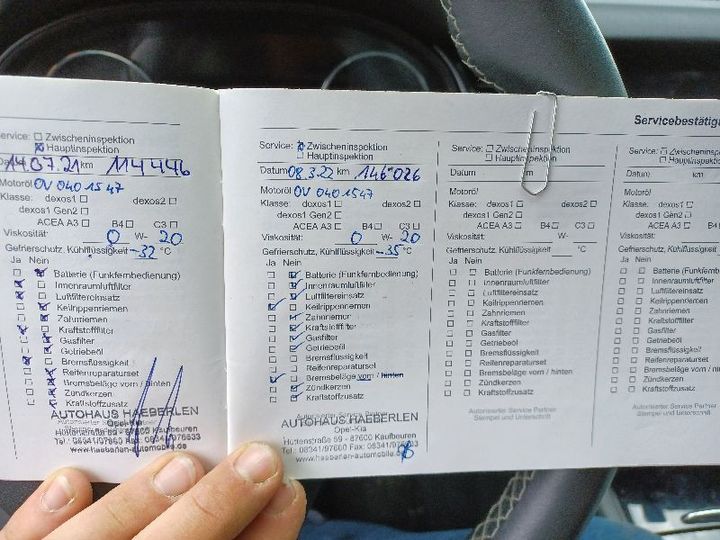 Servicebestätig
Service: Zwischeninspektion
Hauptinspektion
14.07.21 km 114 446
Motoröl OV 040 15 47
Klasse: dexos1 dexos2
dexos1 Gen2
ACEA A3 B4 C3
Viskosität: 0 W- 20
Gefrierschutz, Kühlflüssigkeit -32 °C
Ja Nein
Batterie (Funkfernbedienung)
Innenraumluftfilter
Luftfiltereinsatz
Keilrippenriemen
Zahnriemen
Kraftstofffilter
Gasfilter
Getriebeöl
Bremsflüssigkeit
Reifenreparaturset
Bremsbeläge vorn / hinten
Zündkerzen
Kraftstoffzusatz
AUTOHAUS HAEBERLEN
Opel-Kia
Hüttenstraße 59 - 87600 Kaufbeuren
Tel.: 08341/97660 Fax: 08341/976633
www.haeberlen-automobile.de
Service: Zwischeninspektion
Hauptinspektion
Datum 08.3.22 km 146 026
Motoröl OV 040 1547
Klasse: dexos1 dexos2
dexos1 Gen2
ACEA A3 B4 C3
Viskosität: 0 W- 20
Gefrierschutz, Kühlflüssigkeit -35 °C
Ja Nein
Batterie (Funkfernbedienung)
Innenraumluftfilter
Luftfiltereinsatz
Keilrippenriemen
Zahnriemen
Kraftstofffilter
Gasfilter
Getriebeöl
Bremsflüssigkeit
Reifenreparaturset
Bremsbeläge vorn / hinten
Zündkerzen
Kraftstoffzusatz
AUTOHAUS HAEBERLEN
Opel-Kia
Hüttenstraße 59 - 87600 Kaufbeuren
Tel.: 08341/97660 Fax: 08341/976633
www.haeberlen-automobile.de
Service: Zwischeninspektion
Hauptinspektion
Datum km
Motoröl
Klasse: dexos1 dexos2
dexos1 Gen2
ACEA A3 B4 C3
Viskosität: W-
Gefrierschutz, Kühlflüssigkeit °C
Ja Nein
Batterie (Funkfernbedienung)
Innenraumluftfilter
Luftfiltereinsatz
Keilrippenriemen
Zahnriemen
Kraftstofffilter
Gasfilter
Getriebeöl
Bremsflüssigkeit
Reifenreparaturset
Bremsbeläge vorn / hinten
Zündkerzen
Kraftstoffzusatz
Autorisierter Service Partner
Stempel und Unterschrift
Service: Zwischen
Hauptins
Datum
Motoröl
Klasse: dexos1
dexos1 Gen2
ACEA A3
Viskosität:
Gefrierschutz, Kühlflüss
Ja Nein
Batterie (Funk
Innenraumluft
Luftfiltereinsa
Keilrippenrie
Zahnriemen
Kraftstofffilte
Gasfilter
Getriebeöl
Bremsflüssig
Reifenrepara
Bremsbeläge
Zündkerzen
Kraftstoffzus
Autorisierter Servic
Stempel und Unt